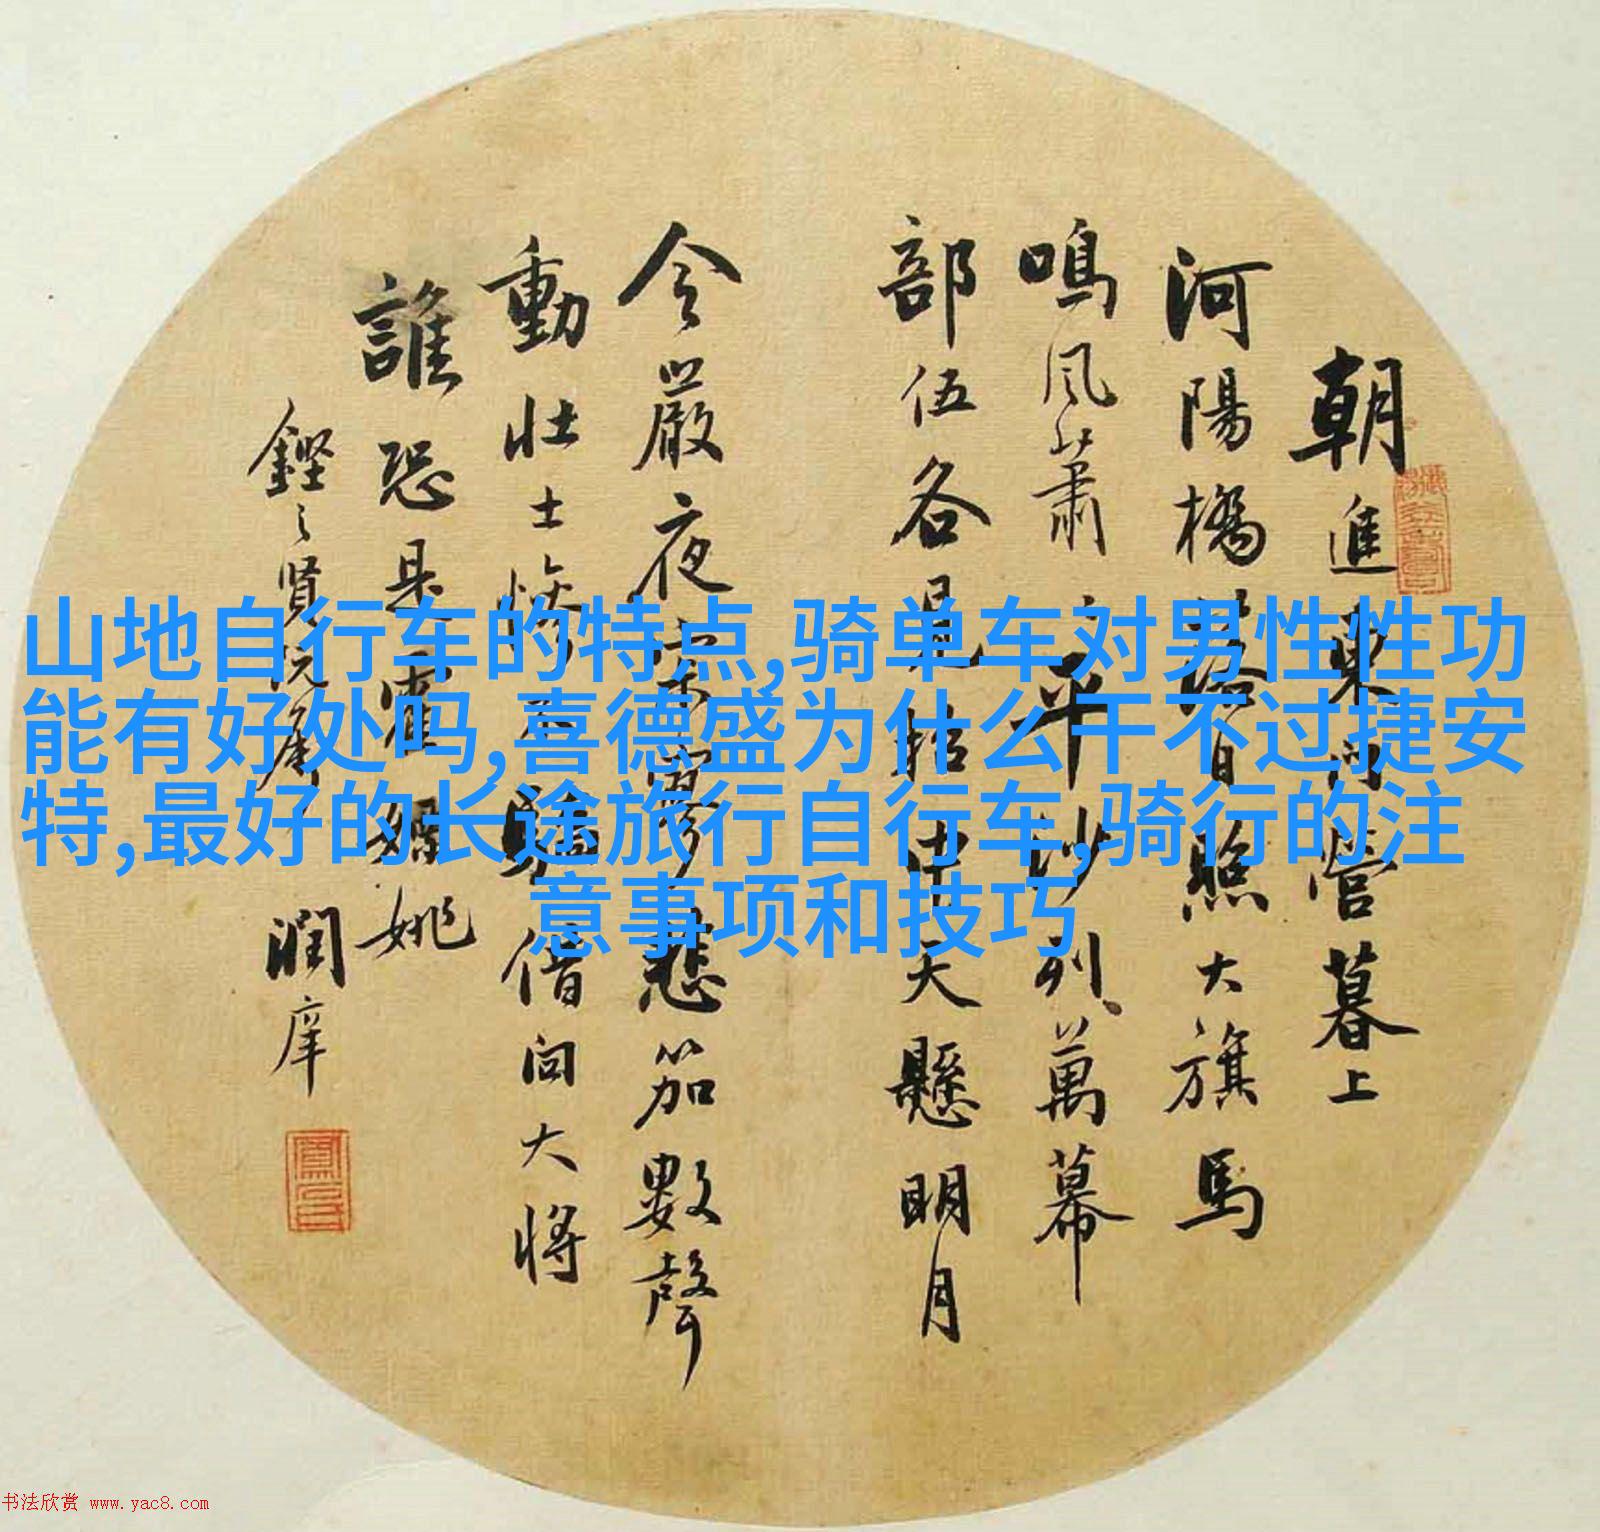 朝進東門營暮上
河陽橋落日照大旗馬
鳴風蕭平沙列萬幕
部伍各見招中天懸明月
令嚴夜寂寥悲笳數聲
動壯士慘不驕借問大將
誰恐是霍嫖姚
賢阮
潤庠
山地自行车的特点,骑单车对男性性功
能有好处吗,喜德盛为什么干不过捷安
特,最好的长途旅行自行车,骑行的注
意事项和技巧
书法欣赏 www.yac8.com